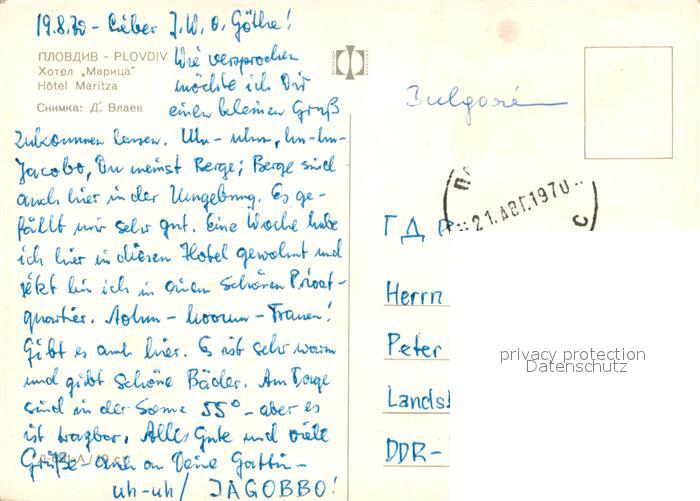 19.8.70 - Lieber J.W. v. Göthe!
ПЛОВДИВ - PLOVDIV
Хотел „Марица"
Hôtel Maritza
Снимка: Д. Влаев
Wie versprochen
möchte ich Dir
einen kleinen Gruß
zukommen lassen. Uhu - uhu, hu-hu-
Jacobo, Du meinst Berge; Berge sind
auch hier in der Umgebung. Es ge-
fällt mir sehr gut. Eine Woche habe
ich hier in diesem Hotel gewohnt und
jetzt bin ich in einem schönen Privat-
quartier. - Frauen!
Gibt es auch hier. Es ist sehr warm
und gibt schöne Bäder. Am Tage
sind in der Sonne 55° - aber es
ist tragbar. Alles Gute und viele
Grüße auch an Deine Gattin -
uh-uh / JAGOBBO!
Bulgarien
21.АВГ.1970
ГДР
Herrn
Peter
Lands
DDR-
privacy protection
Datenschutz